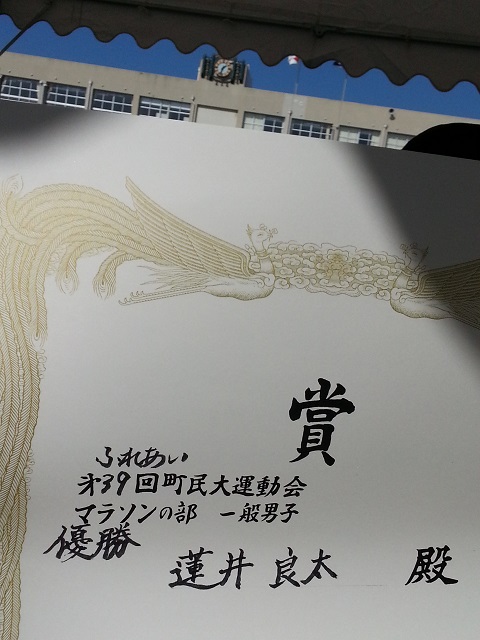 賞
ふれあい
第39回町民大運動会
マラソンの部 一般男子
優勝
蓮井良太 殿